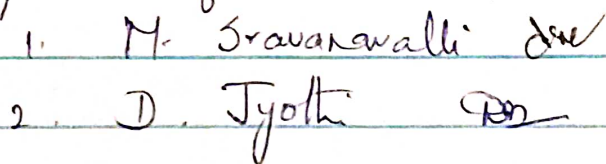 1. M. Sravanavalli
2. D. Jyothi